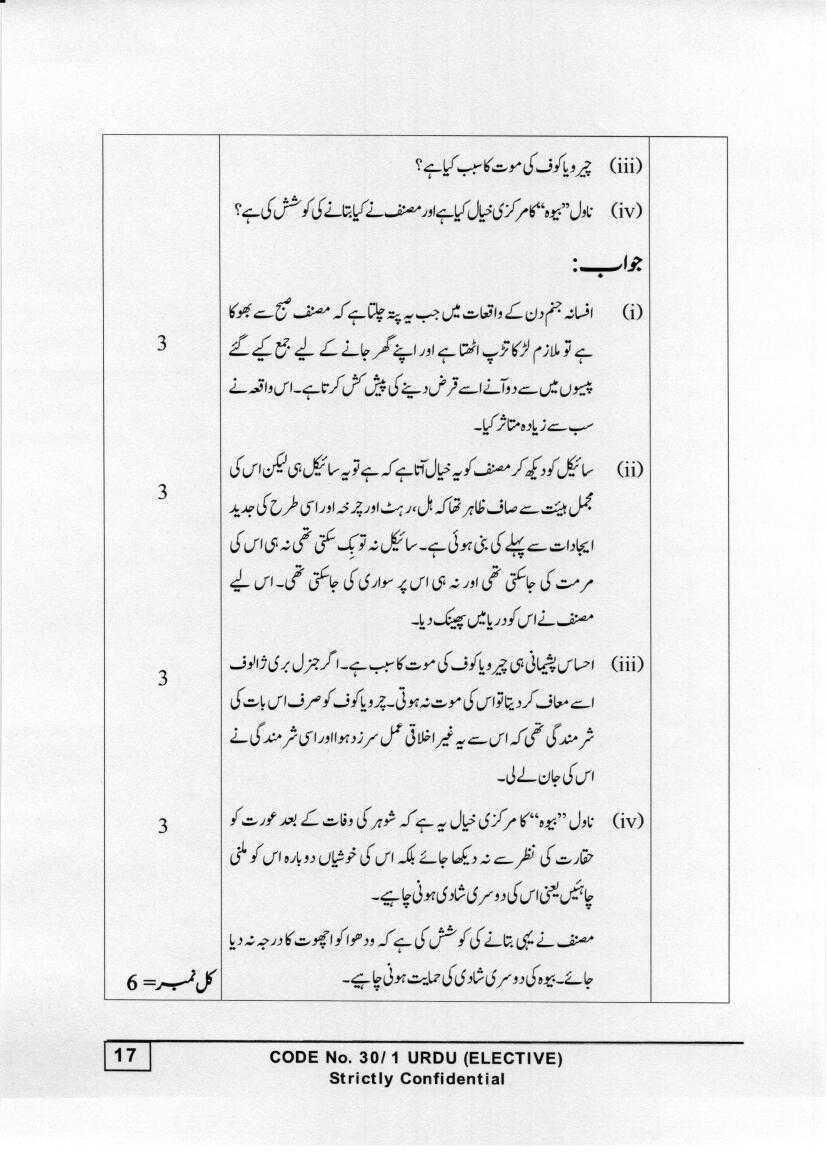 (iii) چیرویاکوف کی موت کا سبب کیا ہے؟
(iv) ناول ”بیوہ“ کا مرکزی خیال کیا ہے اور مصنف نے کیا بتانے کی کوشش کی ہے؟
جواب:
(i) افسانہ جنم دن کے واقعات میں جب یہ پتہ چلتا ہے کہ مصنف صبح سے بھوکا
3
ہے تو ملازم لڑکا تڑپ اٹھتا ہے اور اپنے گھر جانے کے لیے جمع کیے گئے
پیسوں میں سے دو آنے اسے قرض دینے کی پیش کش کرتا ہے۔ اس واقعہ نے
سب سے زیادہ متاثر کیا۔
(ii) سائیکل کو دیکھ کر مصنف کو یہ خیال آتا ہے کہ ہے تو یہ سائیکل ہی لیکن اس کی
3
مجمل ہیئت سے صاف ظاہر تھا کہ ہل، رہٹ اور چرخہ اور اسی طرح کی جدید
ایجادات سے پہلے کی بنی ہوئی ہے۔ سائیکل نہ تو بِک سکتی تھی نہ ہی اس کی
مرمت کی جاسکتی تھی اور نہ ہی اس پر سواری کی جاسکتی تھی۔ اس لیے
مصنف نے اس کو دریا میں پھینک دیا۔
(iii) احساس پشیمانی ہی چیرویاکوف کی موت کا سبب ہے۔ اگر جنرل بری ژالوف
3
اسے معاف کر دیتا تو اس کی موت نہ ہوتی۔ چرویاکوف کو صرف اس بات کی
شرمندگی تھی کہ اس سے یہ غیر اخلاقی عمل سرزد ہوا اور اسی شرمندگی نے
اس کی جان لے لی۔
(iv) ناول ”بیوہ“ کا مرکزی خیال یہ ہے کہ شوہر کی وفات کے بعد عورت کو
3
حقارت کی نظر سے نہ دیکھا جائے بلکہ اس کی خوشیاں دوبارہ اس کو ملنی
چاہئیں یعنی اس کی دوسری شادی ہونی چاہیے۔
مصنف نے یہی بتانے کی کوشش کی ہے کہ ودھوا کو اچھوت کا درجہ نہ دیا
جائے۔ بیوہ کی دوسری شادی کی حمایت ہونی چاہیے۔
کل نمبر = 6
17
CODE No. 30/ 1 URDU (ELECTIVE)
Strictly Confidential